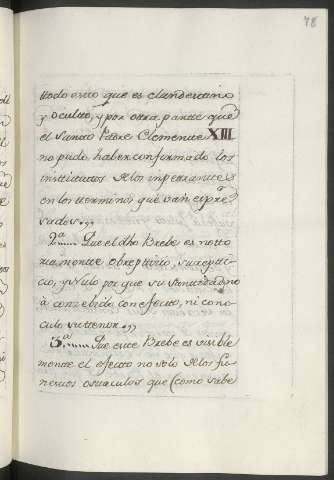 78
ttodo esto que es clandestino
y oculto, y por ottra partte que
el Santo Padre Clemente XIII
no pudo haber conformado los
instittuttos de los impetrantes
en los tterminos que van expre
sados,,,
2ª..... Que el dho Brebe es notto
riamentte obrepticio, surepti-
cio, y Nulo por que su Santtidad no
á conzebido con efecto, ni cono-
cido su tenor,,,
3ª..... Que este Brebe es visible
mente el efecto no solo de los fu
nestos ostaculos que (como sabe